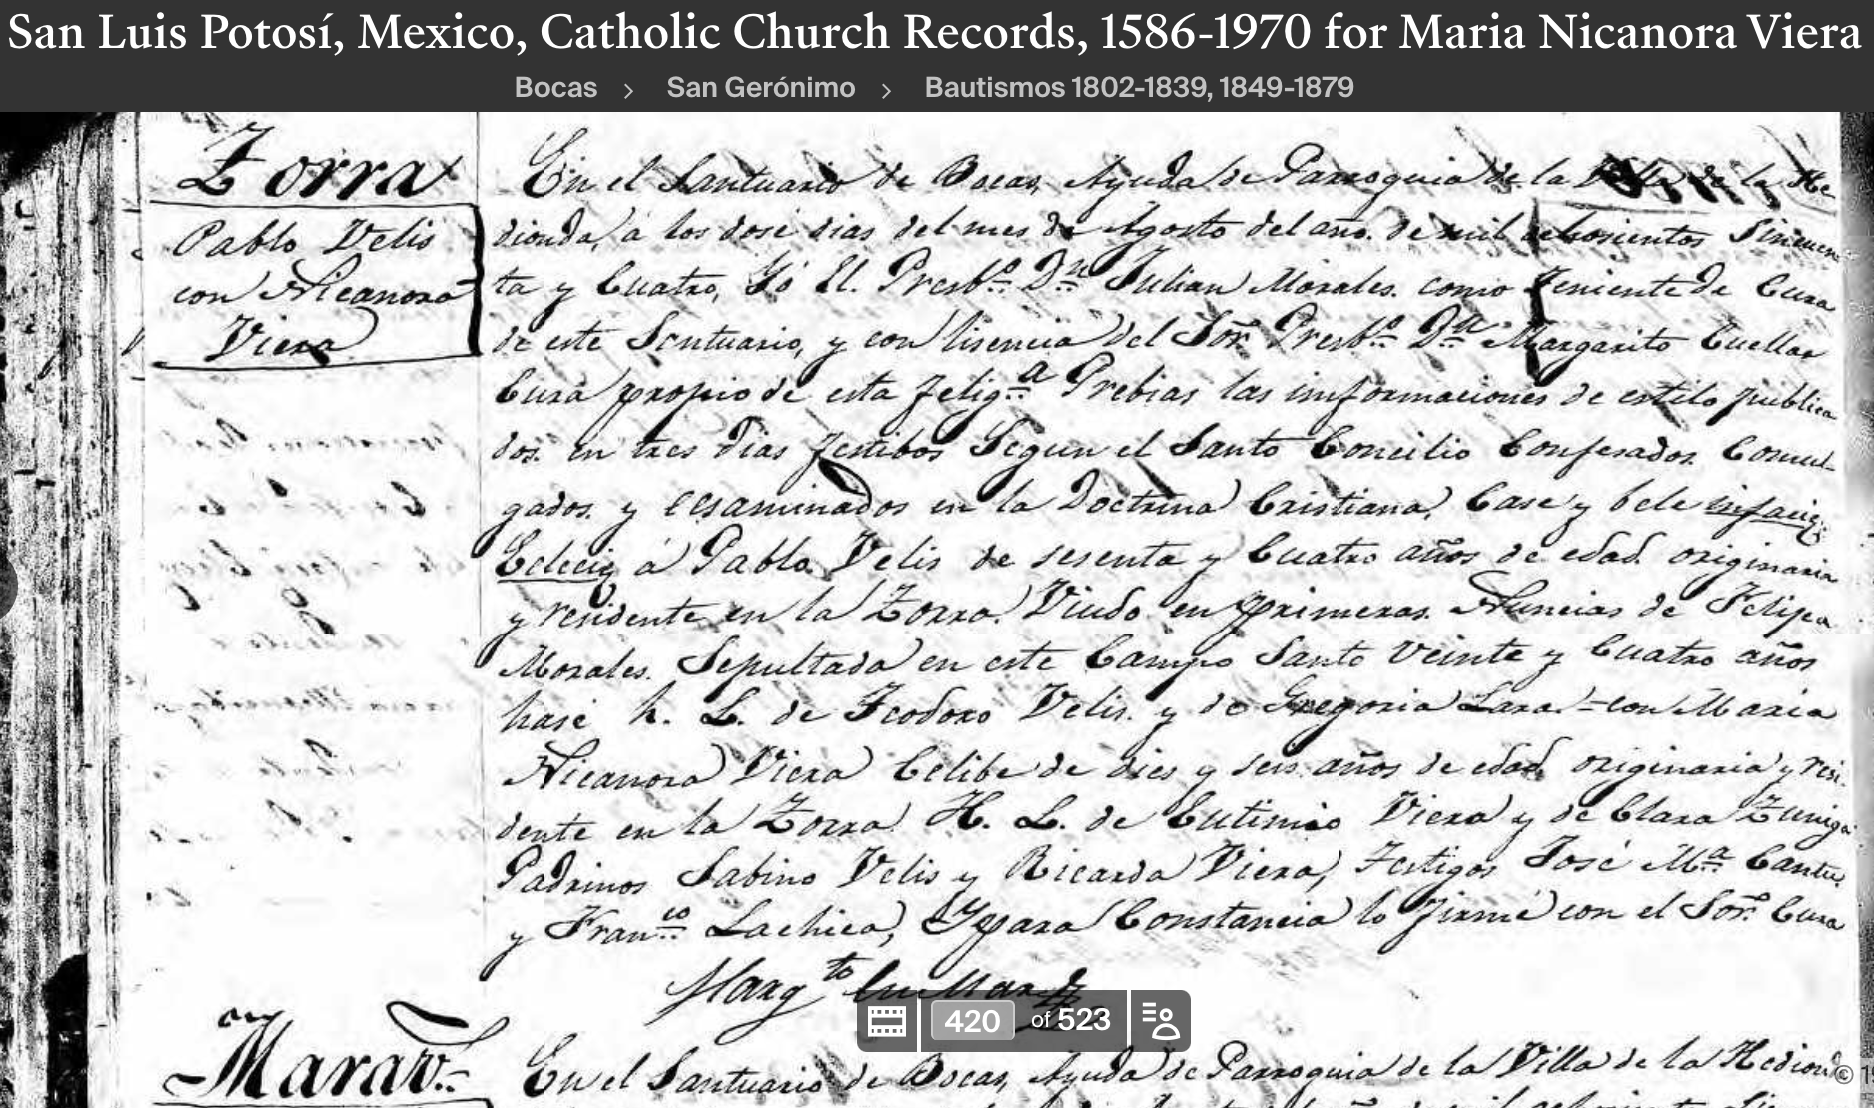 San Luis Potosí, Mexico, Catholic Church Records, 1586-1970 for Maria Nicanora Viera
Bocas > San Gerónimo > Bautismos 1802-1839, 1849-1879
Zorra
Pablo Velis
con Nicanora
Viera
En el Santuario de Bocas, Ayuda de Parroquia de la Villa de la He
dionda, á los dose dias del mes de Agosto del año de mil ochosientos Sincuen
ta y Cuatro, Yó El. Presb.o D.n Julian Morales. como Teniente De Cura
de este Santuario, y con lisencia del Sor. Presb.o D.n Margarito Cuellar
Cura propio de esta felig.a Prebias las informaciones de estilo publica
dos. en tres Dias festibos Segun el Santo Concilio Confesados. Comul
gados. y ecsaminados en la Doctrina Cristiana, Case y bele infacie
Eclecie á Pablo Velis de sesenta y Cuatro años de edad. originario
y residente en la Zorra. Viudo en primeras. Nuncias de Felipa
Morales. Sepultada en este Campo Santo Veinte y Cuatro años
hase h. L. de Teodoro Velis. y de Gregoria Lara.=con Maria
Nicanora Viera Celibe de dies y seis años de edad originaria y resi
dente en la Zorra. H. L. de Eutimio Viera y de Clara Zuniga
Padrinos Sabino Velis y Ricarda Viera, Testigos José M.a Cantu,
y Fran.co Lachica, Y para Constancia lo firmé con el Sor. Cura
Marg.to Cuellar
420 of 523
En el Santuario de Bocas, Ayuda de Parroquia de la Villa de la Hedion
©